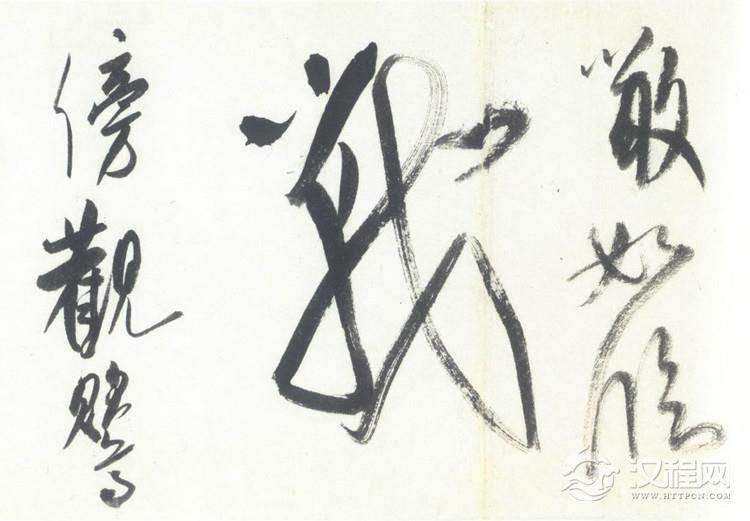 噉如臨
戰
傍觀鸎
汉程网
WWW.HTTPCN.COM